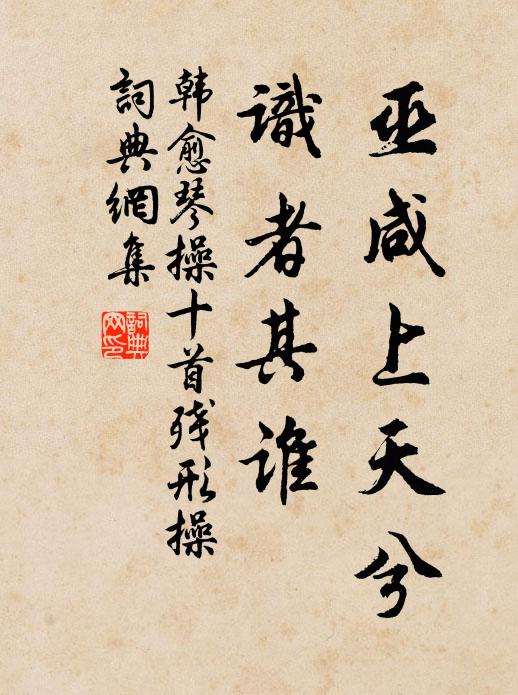 巫咸上天兮
識者其誰
韓愈琴操十首殘形操
詞典網集
詞典网印